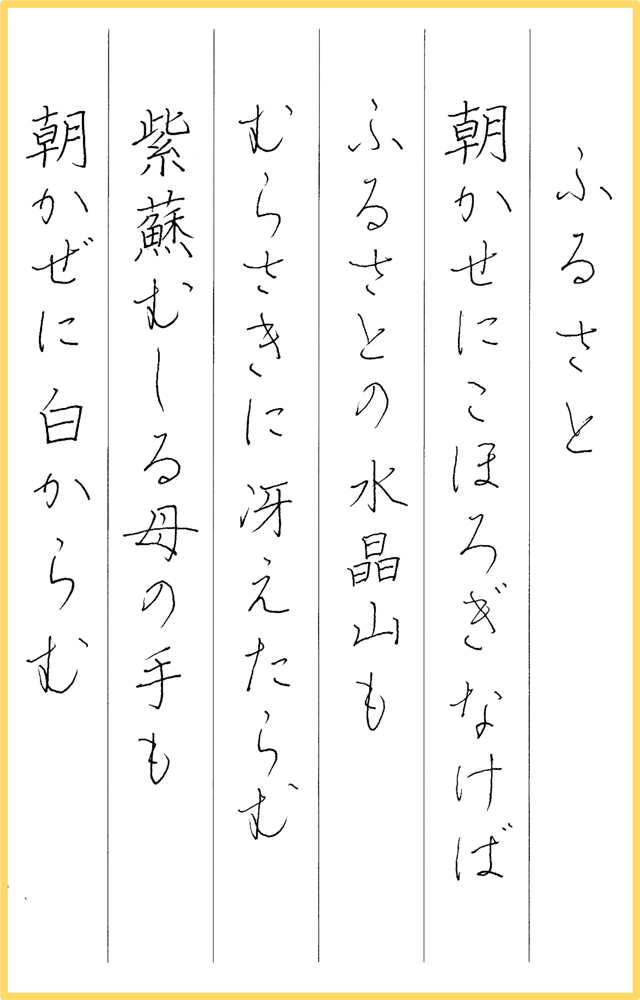 ふるさと
朝かせにこほろぎなけば
ふるさとの水晶山も
むらさきに冴えたらむ
紫蘇むしる母の手も
朝かぜに白からむ